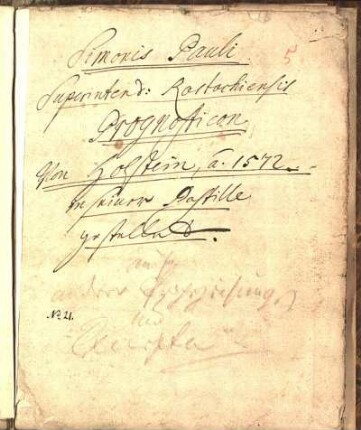 Simonis Pauli
5
Superintend: Rostochiensis
Prognosticon
Von Holstein, a. 1572.
in seiner Postille
gestellet.
andere
No. 21.